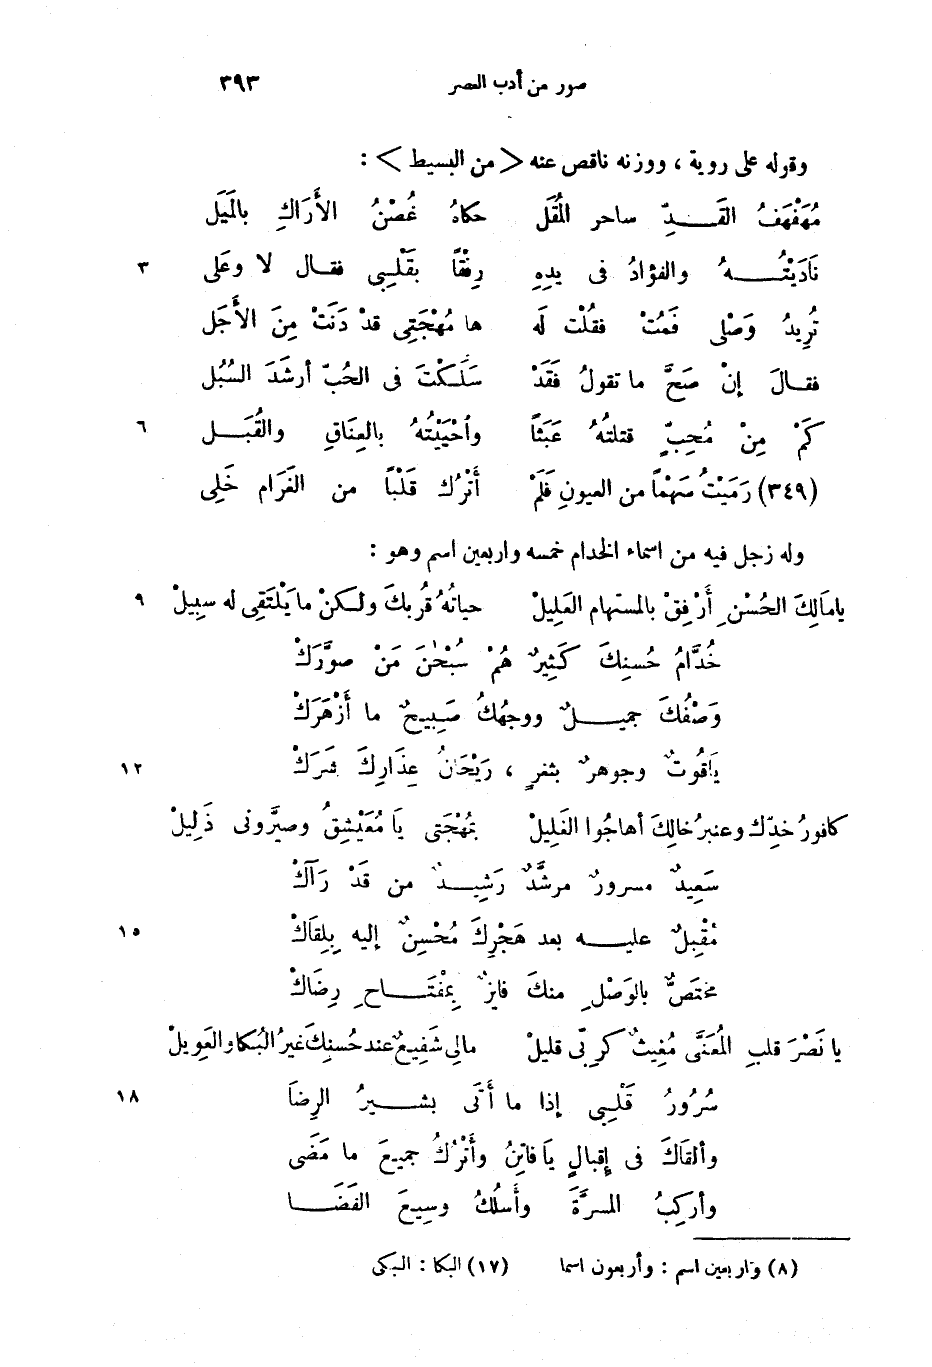 صور من أدب العصر ٣٩٣
وقوله على روية ، ووزنه ناقص عنه < من البسيط > :
مُهَفْهَفُ القَــدِّ ساحر المُقَل حكاهُ غُصْنُ الأَرَاكِ بالمَيَل
نَادَيْتُــهُ والفؤادُ فى يدِهِ رِفْقاً بقَلْبِى فقال لا وعَلى ٣
تُرِيدُ وَصْلى فَمُتْ فقلْت لَه ها مُهْجَتِى قدْ دَنَتْ مِنَ الأَجَل
فقالَ إنْ صَحَّ ما تقولُ فَقَدْ سَلَكْتَ فى الحُبّ أرشَدَ السُبُل
كَمْ مِنْ مُحِبٍّ قتلتهُ عَبَثاً وأحْيَيْتهُ بالعِنَاقِ والقُبَــل ٦
(٣٤٩) رَمَيْتُ سَهْماً من العيونِ فَلَمْ أَتْرُك قَلْباً من الغَرَام خَلِى
وله زجل فيه من اسماء الخدام خمسه واربعين اسم وهو :
يامَالِكَ الحُسْنِ أَرْفِقْ بالمستهام العَلِيلْ حياتُهُ قُربكَ ولكنْ ما يَلْتَقِى له سبِيلْ ٩
خُدَّامُ حُسنِكَ كَثِيرٌ هُمْ سُبْحٰنَ مَنْ صوَّرَكْ
وَصْفُكَ جميــلٌ ووجهُكُ صَبِيحٌ ما أَزْهَرَكْ
يَاقُوتٌ وجوهرٌ بثغرٍ ، رَيْحَانُ عِذَارِكَ ثمرَكْ ١٢
كافورُ خدِّك وعنبرُ خالِكَ أهاجُوا الغَلِيلْ بمُهْجَتى يَا مُعَيْشِقُ وصيَّرونى ذَلِيلْ
سَعِيدٌ مسرورٌ مرشَّدٌ رَشِيــدٌ من قَدْ رَآكْ
مُقْبِلٌ عليــه بعد هَجْرِكَ مُحْسِنٌ إليه بِلِقَاكْ ١٥
مختَصٌّ بالوَصْلِ منكَ فايزٌ بِمْفْتَــاحِ رِضَاكْ
يا نَصْرَ قلبِ المُعَنَّى مُغِيثٌ كَرِبّى قليلْ مالى شَفِيعٌ عند حُسنِكَ غيرُ البُكا والعَوِيلْ
سُرُورُ قَلْبِى إذا ما أَتَى بشــيرُ الرِضَا ١٨
وألقَاكَ فى إقبالٍ يَا فاتِنُ وأَتْرُكُ جميعَ ما مَضَى
وأركِبُ المسرَّةَ وأَسلُكُ وسِيعَ الفَضَــا
(٨) واربعين اسم : وأربعون اسما (١٧) البكا : البكى